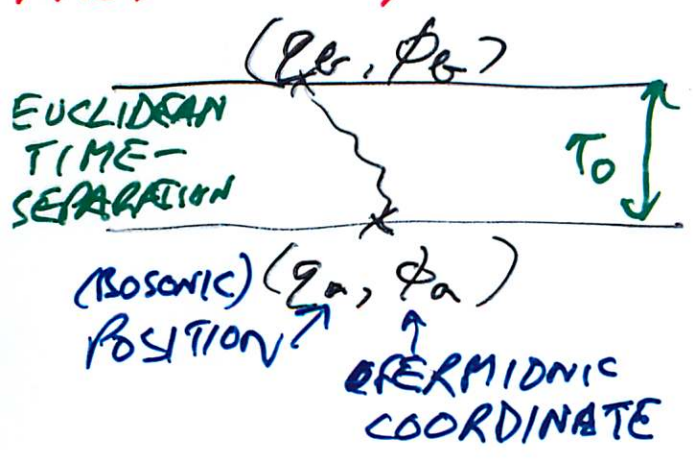 (q_b, ϕ_b)
EUCLIDEAN
TIME-
SEPARATION
τ_0
(BOSONIC) (q_a, ϕ_a)
POSITION
FERMIONIC
COORDINATE